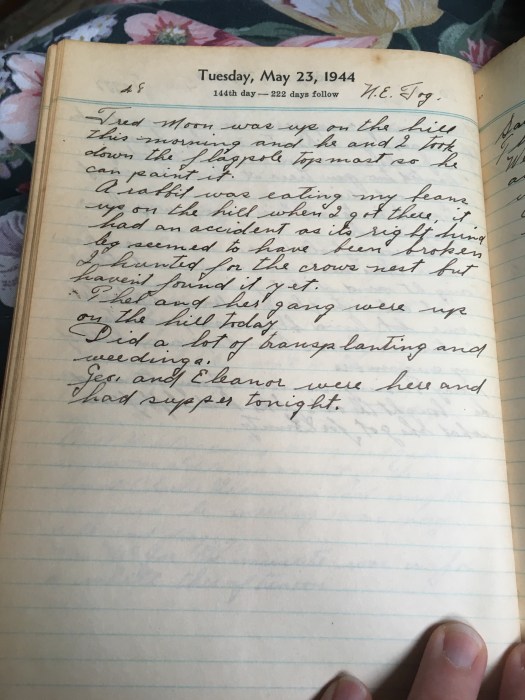 Tuesday, May 23, 1944
48 144th day — 222 days follow N.E. Fog.
Fred Moon was up on the hill
this morning and he and I took
down the flagpole topmast so he
can paint it.
A rabbit was eating my beans
up on the hill when I got there, it
had an accident as its right hind
leg seemed to have been broken
I hunted for the crows nest but
haven't found it yet.
and her gang were up
on the hill today
Did a lot of transplanting and
weedings.
Geo. and Eleanor were here and
had supper tonight.